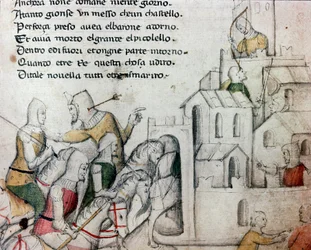 Anchora none comane niente giorno.
Atanto gionse un messo dun chastello.
Perforça preso auea elbarone atorno.
Et auia morto elgrante elpicolello
Dentro edi fuori etongne parte intorno
Quanto etre Re questi chosa udiro
Ditale nouella tutti